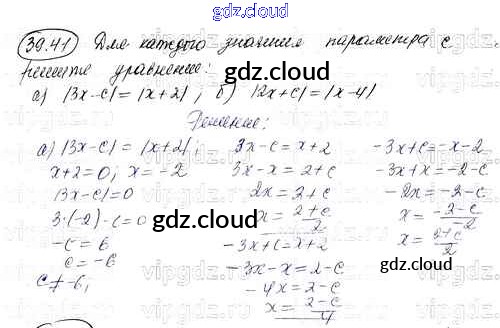 gdz.cloud
39.41 Для каждого значения параметра c
решите уравнение:
а) |3x-c|=|x+2|; б) |2x+c|=|x-4|
gdz.cloud
Решение:
а) |3x-c|=|x+2|;
x+2=0; x=-2
|3x-c|=0
3·(-2)-c=0
-c=6
c=-6
c≠-6,
3x-c=x+2
3x-x=2+c
2x=2+c
x=2+c/2
-3x+c=x+2
-3x-x=2-c
-4x=2-c
x=2-c/4
-3x+c=-x-2
-3x+x=-2-c
-2x=-2-c
x=-2-c/-2
x=2+c/2
gdz.cloud
gdz.cloud
gdz.cloud